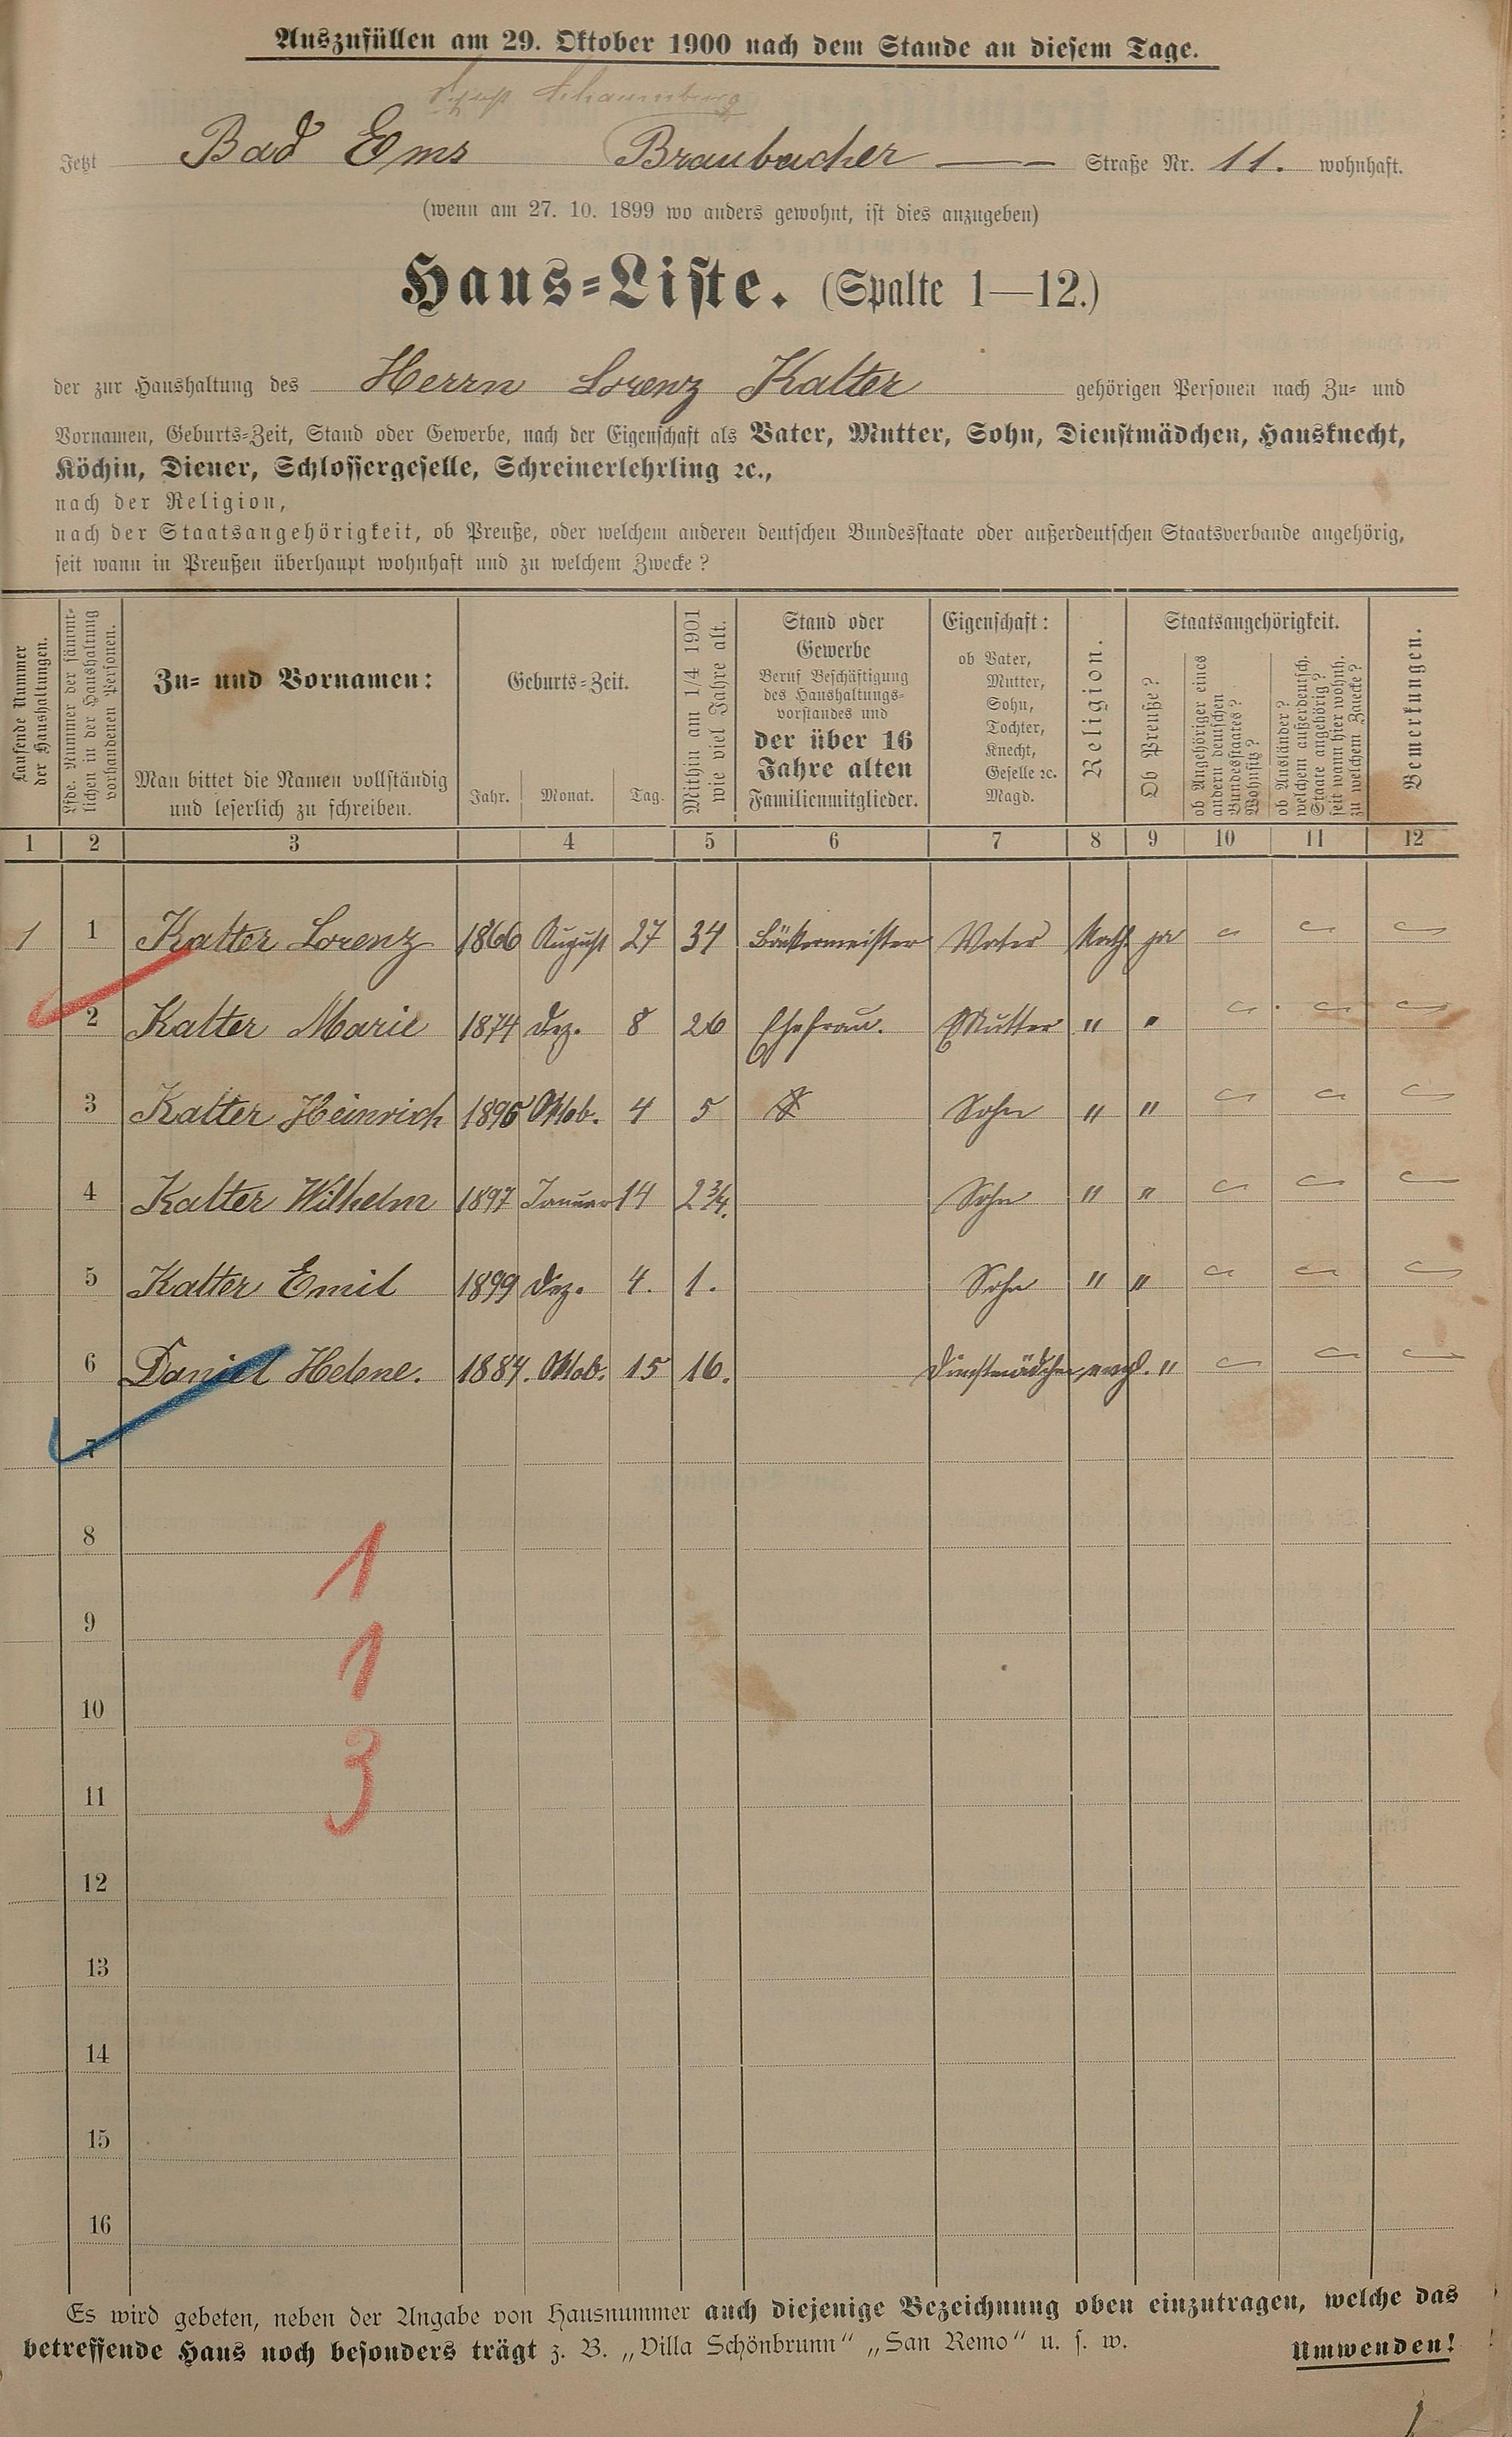 Auszufüllen am 29. Oktober 1900 nach dem Stande an diesem Tage.
Schaumburg
Jetzt Bad Ems Braubacher — Straße Nr. 11. wohnhaft.
(wenn am 27. 10. 1899 wo anders gewohnt, ist dies anzugeben)
Haus=Liste. (Spalte 1—12.)
der zur Haushaltung des Herrn Lorenz Kalter gehörigen Personen nach Zu= und
Vornamen, Geburts=Zeit, Stand oder Gewerbe, nach der Eigenschaft als Vater, Mutter, Sohn, Dienstmädchen, Hausknecht,
Köchin, Diener, Schlossergeselle, Schreinerlehrling ꝛc.,
nach der Religion,
nach der Staatsangehörigkeit, ob Preuße, oder welchem anderen deutschen Bundesstaate oder außerdeutschen Staatsverbande angehörig,
seit wann in Preußen überhaupt wohnhaft und zu welchem Zwecke?
Laufende Nummer
der Haushaltungen.
Lfde. Nummer der sämmt=
lichen in der Haushaltung
vorhandenen Personen.
Zu= und Vornamen:
Man bittet die Namen vollständig
und leserlich zu schreiben.
Geburts=Zeit.
Jahr. Monat. Tag.
Mithin am 1/4 1901
wie viel Jahre alt.
Stand oder
Gewerbe
Beruf Beschäftigung
des Haushaltungs=
vorstandes und
der über 16
Jahre alten
Familienmitglieder.
Eigenschaft:
ob Vater,
Mutter,
Sohn,
Tochter,
Knecht,
Geselle ꝛc.
Magd.
Religion.
Staatsangehörigkeit.
Ob Preuße?
ob Angehöriger eines
andern deutschen
Bundesstaates?
Wohnsitz?
ob Ausländer?
welchem außerdeutsch.
Staate angehörig?
seit wann hier wohnh.
zu welchem Zwecke?
Bemerkungen.
1 2 3 4 5 6 7 8 9 10 11 12
1 1 Kalter Lorenz 1866 August 27 34 Bäckermeister Vater Kath. ja
2 Kalter Marie 1874 Dez. 8 26 Ehefrau. Mutter " "
3 Kalter Heinrich 1895 Oktob. 4 5 Sohn " "
4 Kalter Wilhelm 1897 Januar 14 2 3/4. Sohn " "
5 Kalter Emil 1899 Dez. 4. 1. Sohn " "
6 Daniel Helene. 1884. Oktob. 15 16. Dienstmädchen evgl. "
7
8
1
9
1
10
3
11
12
13
14
15
16
Es wird gebeten, neben der Angabe von Hausnummer auch diejenige Bezeichnung oben einzutragen, welche das
betreffende Haus noch besonders trägt z. B. „Villa Schönbrunn“ „San Remo“ u. s. w. Umwenden!